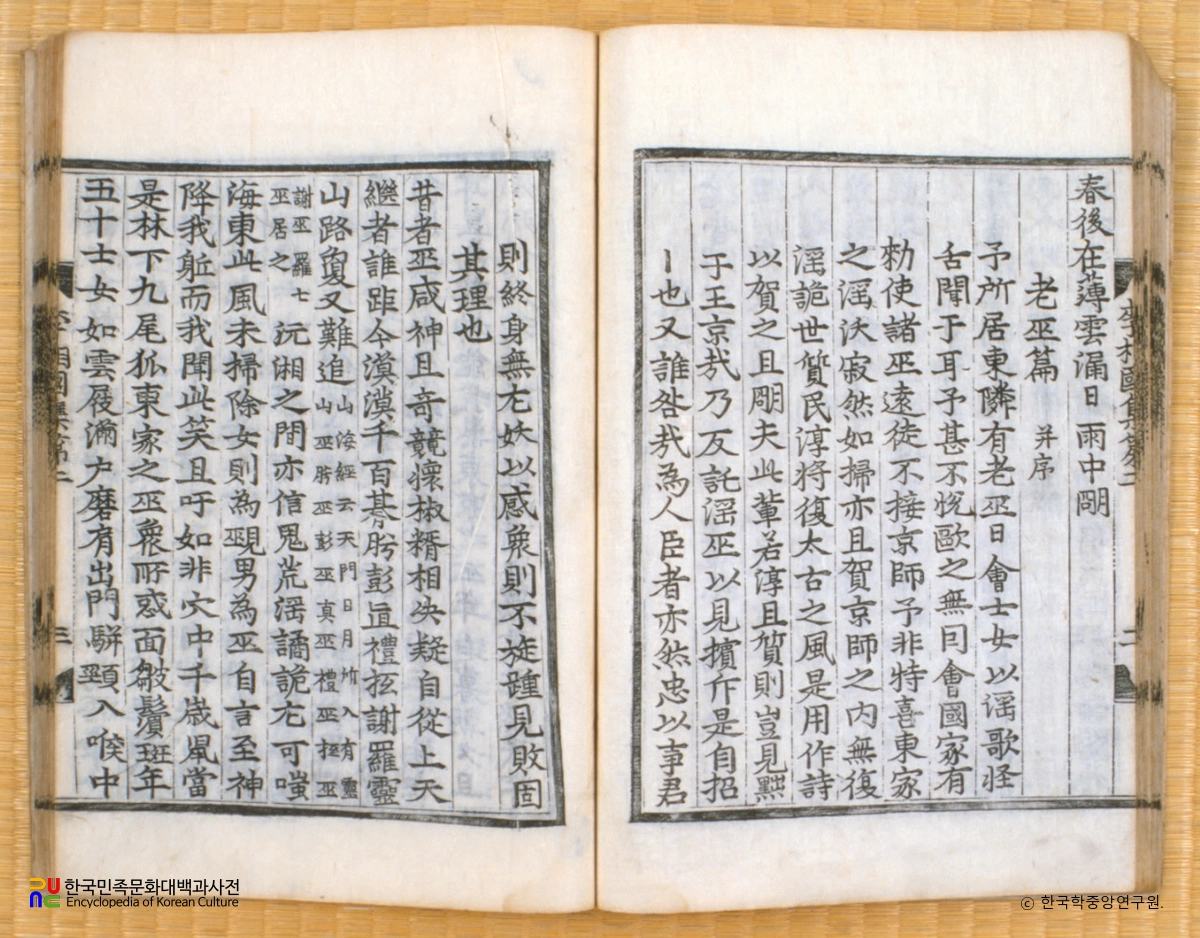 李相國集卷二
二
春後在薄雲漏日雨中朙
老巫篇 并序
予所居東隣有老巫日會士女以謡歌怪
舌聞于耳予甚不悅歐之無因會國家有
勑使諸巫遠徙不接京師予非特喜東家
之淫沃寂然如掃亦且賀京師之內無復
淫詭世質民淳將復太古之風是用作詩
以賀之且朙夫此輩若淳且質則豈見黜
于王京㢤乃反託淫巫以見擯斥是自招
丨也又誰咎㢤為人臣者亦然忠以事君
則終身無尤妖以惑衆則不旋踵見敗固
其理也
昔者巫咸神且奇競懷椒糈相决疑自從上天
繼者誰距今漠漠千百朞肦彭眞禮抵謝羅靈
山路夐又難追 山海經云天門日月所入有靈山巫肦巫彭巫真巫禮巫抵巫
謝巫羅七巫居之 沅湘之間亦信鬼荒淫譎詭尤可嗤
海東此風未掃除女則為覡男為巫自言至神
降我軀而我聞此笑且吁如非穴中千歲鼠當
是林下九尾狐東家之巫衆所惑面皺鬢斑年
五十士女如雲屐滿户磨肩出門騈頸入喉中
相國集第二
三
한국민족문화대백과사전
Encyclopedia of Korean Culture
ⓒ 한국학중앙연구원.